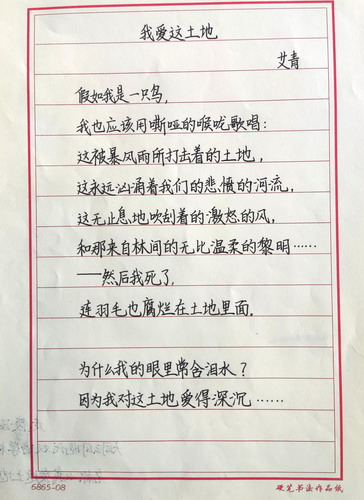 我爱这土地
艾青
假如我是一只鸟,
我也应该用嘶哑的喉咙歌唱:
这被暴风雨所打击着的土地,
这永远汹涌着我们的悲愤的河流,
这无止息地吹刮着的激怒的风,
和那来自林间的无比温柔的黎明……
——然后我死了,
连羽毛也腐烂在土地里面.
为什么我的眼里常含泪水?
因为我对这土地爱得深沉……
6865-08
硬笔书法作品纸